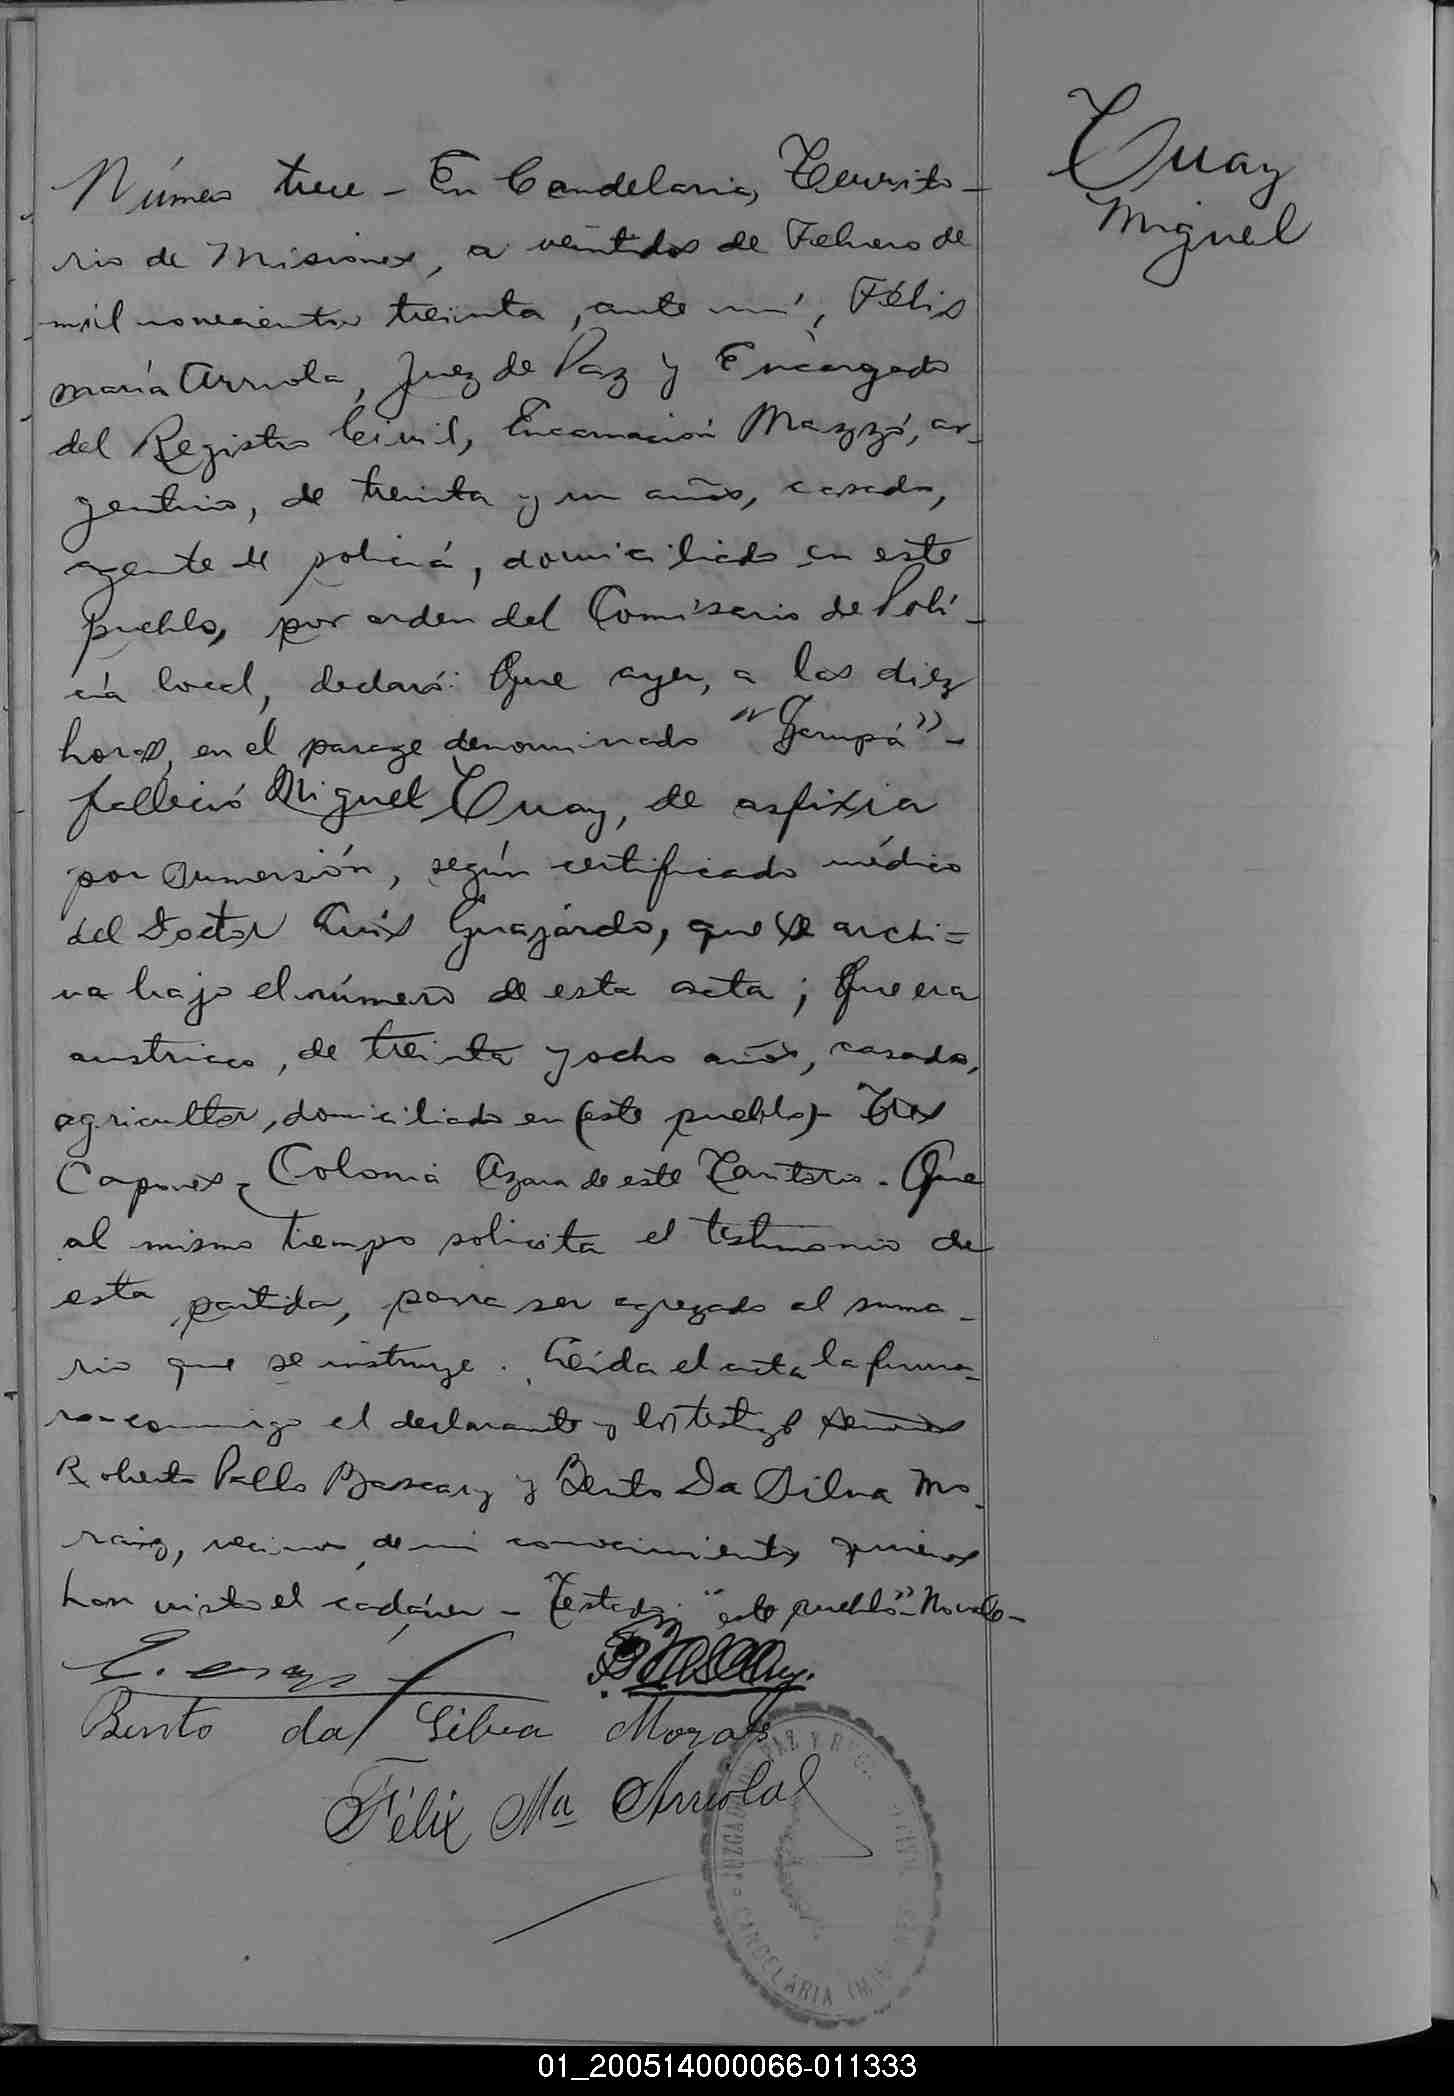 Cuay
Miguel
Número trece - En Candelaria, Territo-
rio de Misiones, a veintidos de Febrero de
mil novecientos treinta, ante mí, Félix
María Arriola, Juez de Paz y Encargado
del Registro Civil, Encarnación Mazzó, ar-
gentino, de treinta y un años, casado,
agente de policía, domiciliado en este
pueblo, por orden del Comisario de Poli-
cía local, declaró: Que ayer, a las diez
horas, en el paraje denominado "Garupá" -
falleció Miguel Cuay, de asfixia
por sumersión, según certificado médico
del Doctor Luis Guajardo, que se archi=
va bajo el número de esta acta; Que era
austriaco, de treinta y ocho años, casado,
agricultor, domiciliado en (este pueblo) - Tres
Capones, Colonia Azara de este Territorio. Que
al mismo tiempo solicita el testimonio de
esta partida, para ser agregado al suma-
rio que se instruye. Leída el acta la firma-
ron conmigo el declarante y los testigos señores
Roberto Pablo Bascary y Bento Da Silva Mo-
raiz, vecinos de mi conocimiento quienes
han visto el cadáver - Testado: "este pueblo" - No vale -
Bento da Silva Morais
Félix Ma Arriola
JUZGADO DE PAZ Y REG. CIVIL
CANDELARIA (MISIONES)
01_200514000066-011333